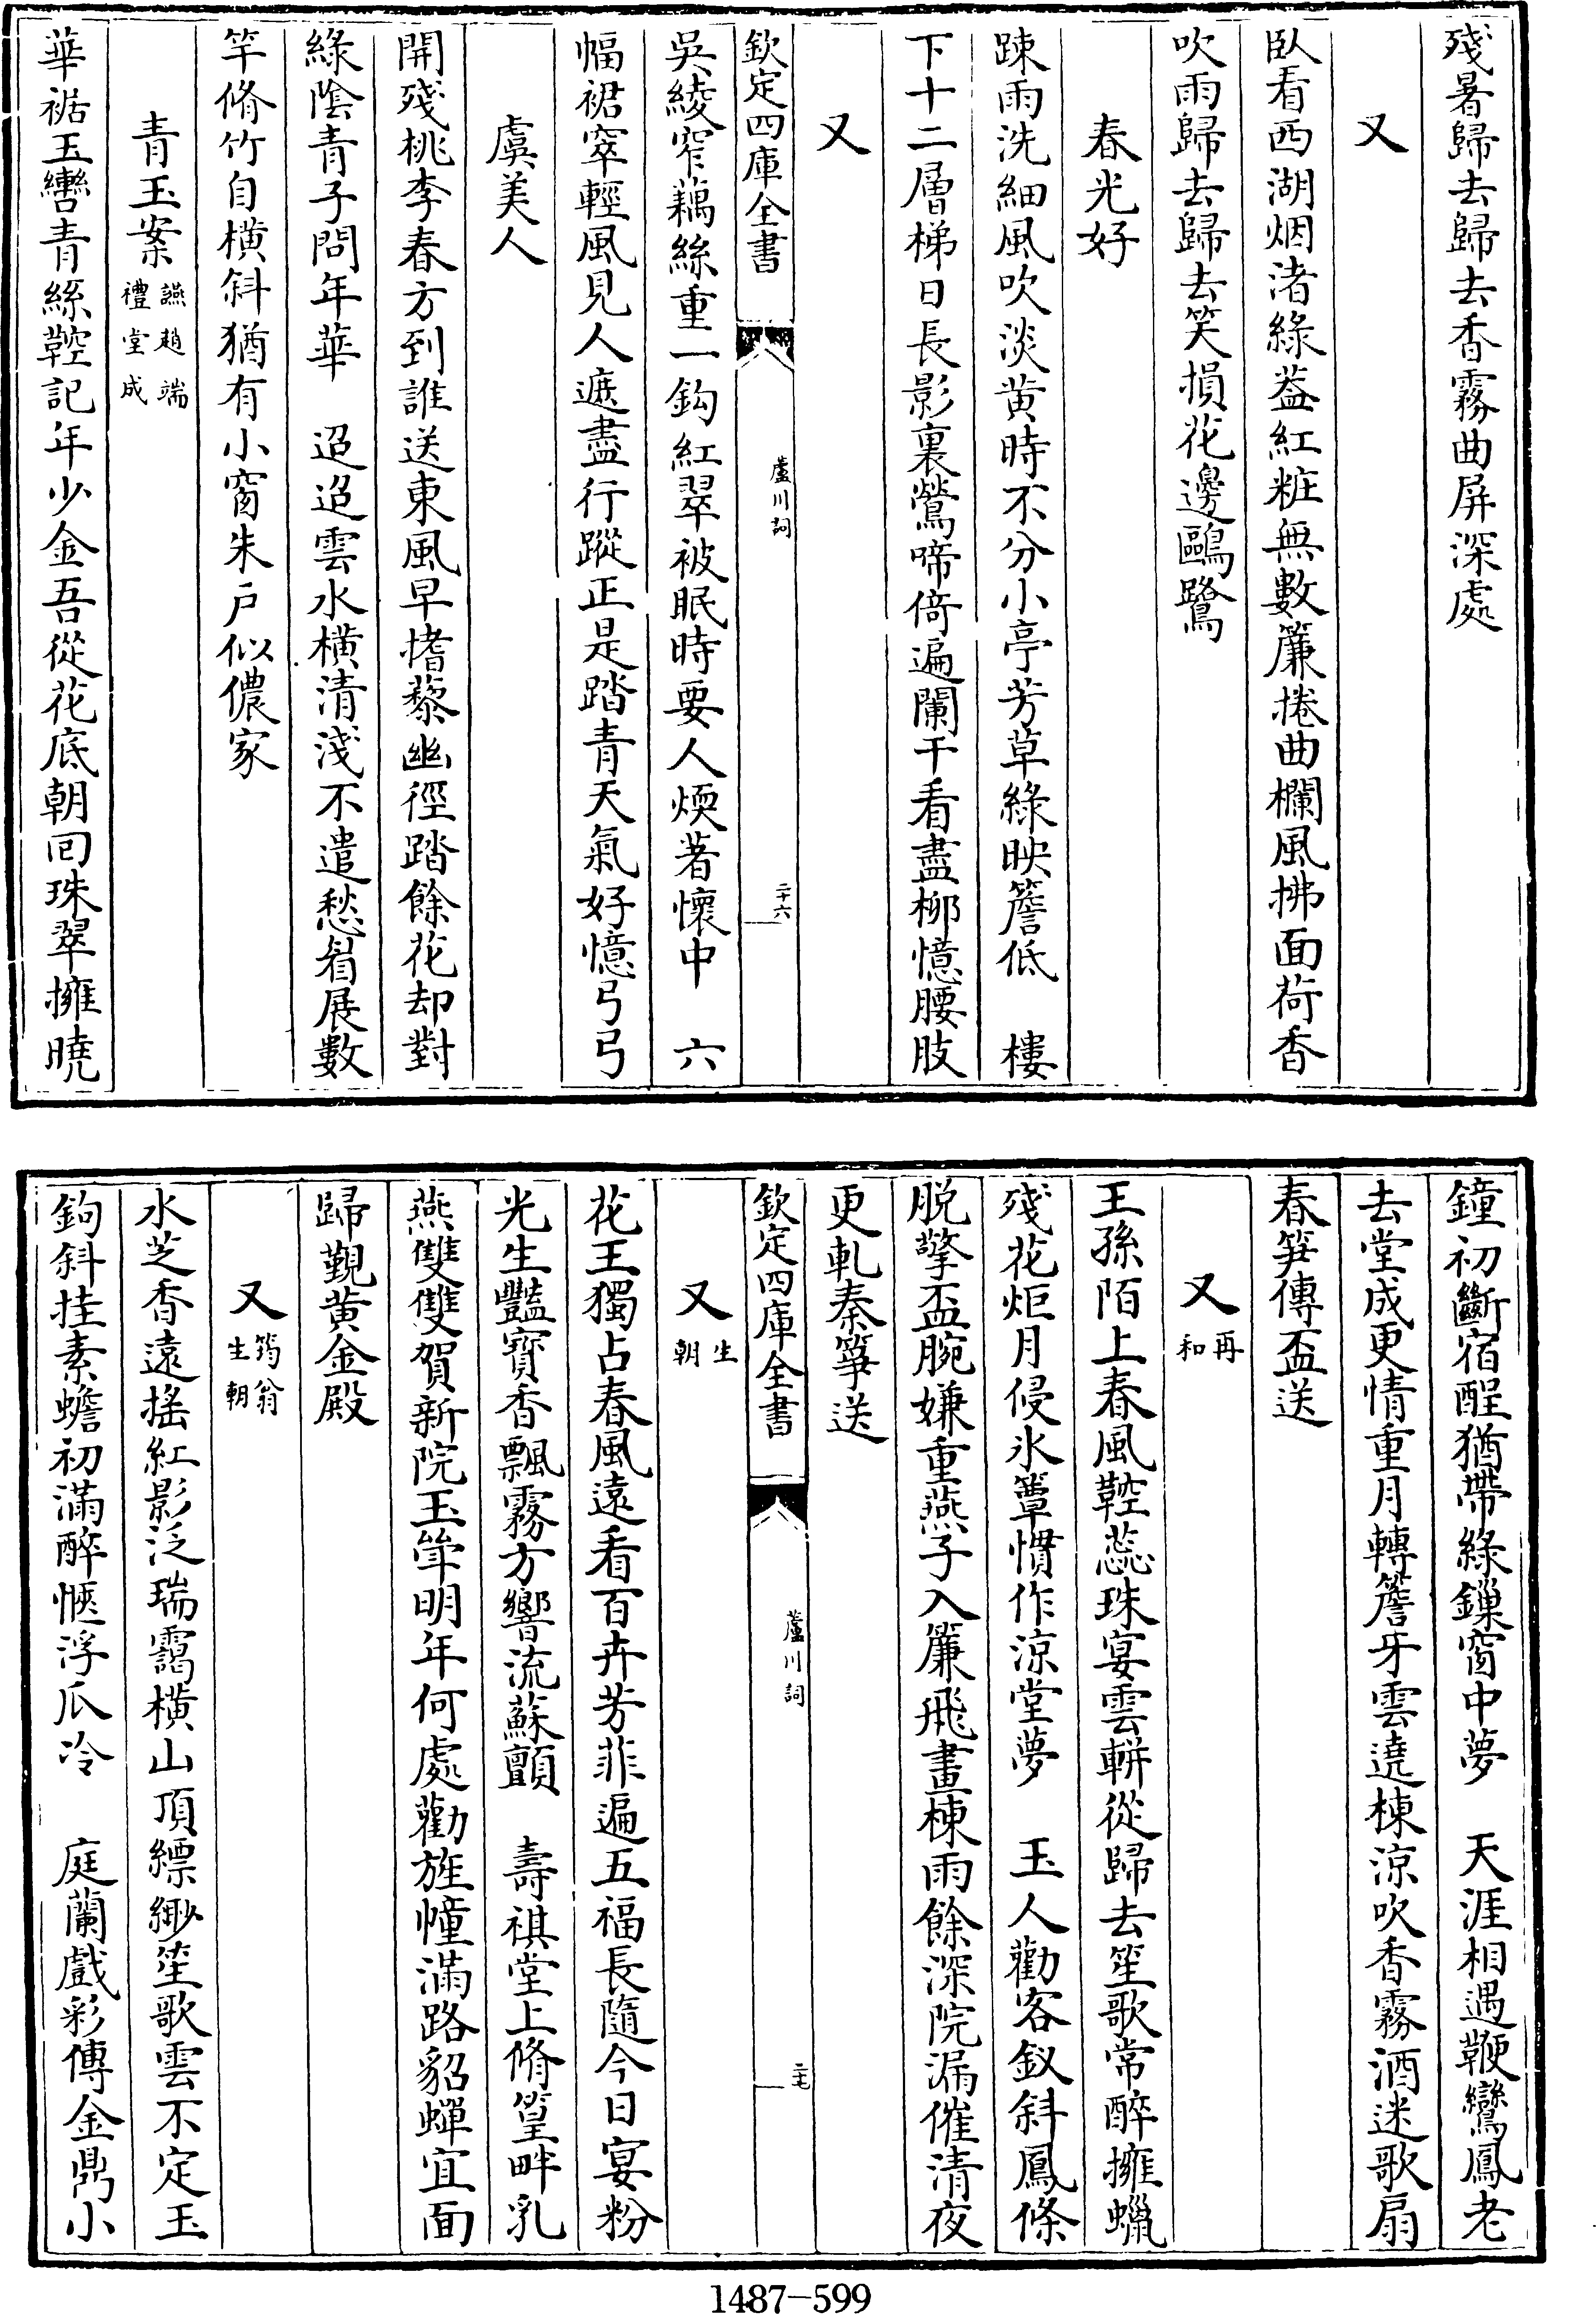 殘暑歸去歸去香霧曲屏深處
又
臥看西湖烟渚綠葢紅粧無數簾捲曲欄風拂面荷香
吹雨歸去歸去笑損花邊鷗鷺
春光好
踈雨洗細風吹淡黄時不分小亭芳草綠映簷低　樓
下十二層梯日長影裏鶯啼倚遍闌干看盡柳憶腰肢
又
欽定四庫全書
蘆川詞
二十六
吳綾窄藕絲重一鈎紅翠被眠時要人煖著懷中　六
幅裙窣輕風見人遮盡行蹤正是踏青天氣好憶弓弓
虞美人
開殘桃李春方到誰送東風早撦藜幽徑踏餘花却對
綠陰青子問年華　迢迢雲水橫清淺不遣愁眉展數
竿脩竹自橫斜猶有小窗朱戶似儂家
青玉案讌趙端禮堂成
華裾玉轡青絲鞚記年少金吾從花底朝囘珠翠擁曉
鐘初斷宿酲猶帶綠鏁窗中夢　天涯相遇鞭鸞鳳老
去堂成更情重月轉簷牙雲遶棟涼吹香霧酒迷歌扇
春笋傳盃送
又再和
王孫陌上春風鞚蕊珠宴雲軿從歸去笙歌常醉擁蠟
殘花炬月侵氷簟慣作涼堂夢　玉人勸客釵斜鳳條
脱擎盃腕嫌重燕子入簾飛畫棟雨餘深院漏催清夜
更軋秦箏送
欽定四庫全書
蘆川詞
二七
又生朝
花王獨占春風遠看百卉芳菲遍五福長隨今日宴粉
光生豔寶香飄霧方響流蘇顫　壽祺堂上脩篁畔乳
燕雙雙賀新院玉斚明年何處勸旌幢滿路貂蟬宜面
歸覲黄金殿
又筠翁生朝
水芝香遠搖紅影泛瑞靄橫山頂縹緲笙歌雲不定玉
鉤斜挂素蟾初滿醉愜浮瓜冷　庭蘭戲彩傳金鼎小
1487-599